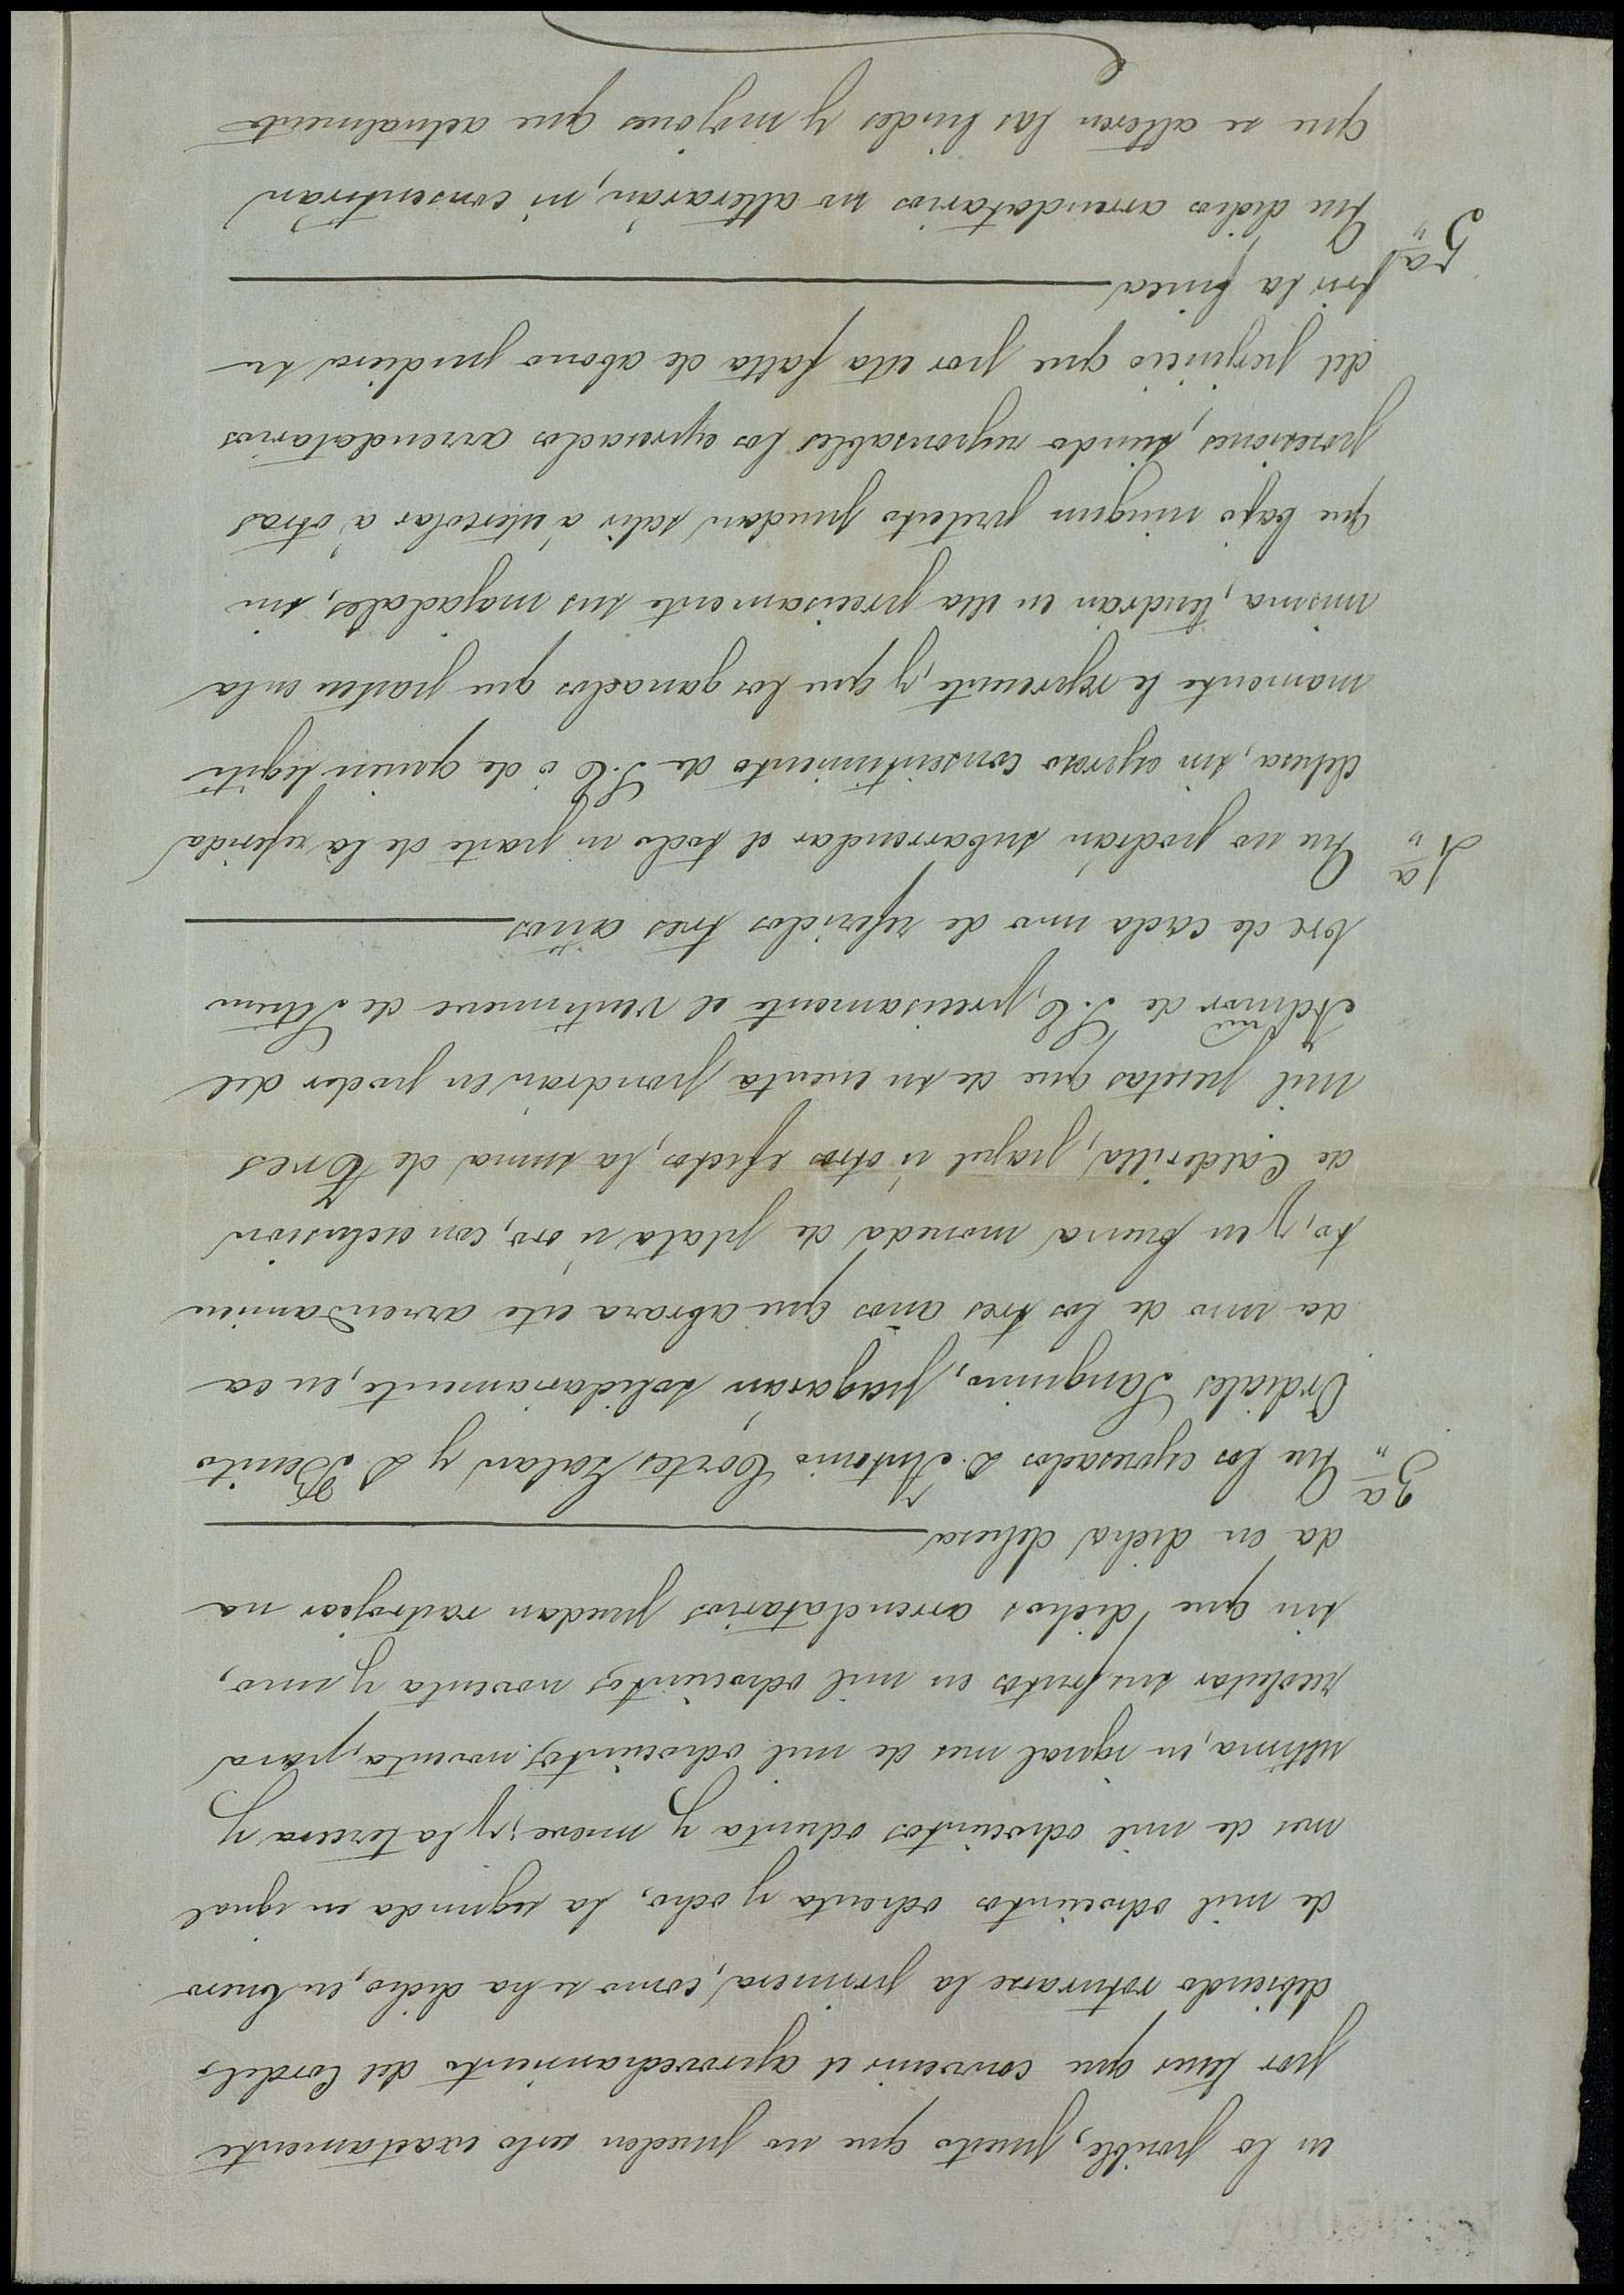 en lo posible, puesto que no pueden serlo exactamente
por tener que convenir el aprovechamiento del Cordel,
debiendo roturarse la primera, como se ha dicho, en Enero
de mil ochocientos ochenta y ocho, la segunda en igual
mes de mil ochocientos ochenta y nueve; y la tercera y
ultima, en igual mes de mil ochocientos noventa, para
recolectar sus frutos en mil ochocientos noventa y uno,
sin que dichos arrendatarios puedan rastrojear na
da en dicha dehesa
3ª Que los expresados D. Antonio Cortés Galan y D. Benito
Ordiales Sanguino, pagarán solidariamente, en ca
da uno de los tres años que abrara este arrendamien
to, y en buena moneda de plata ú oro, con exclusion
de Calderilla, papel ú otros efectos, la suma de Tres
mil pesetas que de su cuenta pondrán en poder del
Admor de S. E., precisamente el veintinueve de Setiem
bre de cada uno de referidos tres años
4ª Que no podrán subarrendar el todo ni parte de la referida
dehesa, sin expreso consentimiento de S. E. ó de quien legíti
mamente le represente, y que los ganados que pasten en la
misma, tendrán en ella precisamente sus majadales, sin
que bajo ningun pretesto puedan salir á estercolar á otras
posesiones, siendo responsables los expresados arrendatarios
del perjuicio que por esta falta de abono pudiera su
frir la finca
5ª Que dichos arrendatarios no alterarán, ni consentirán
que se alteren las lindes y mojones que actualmente